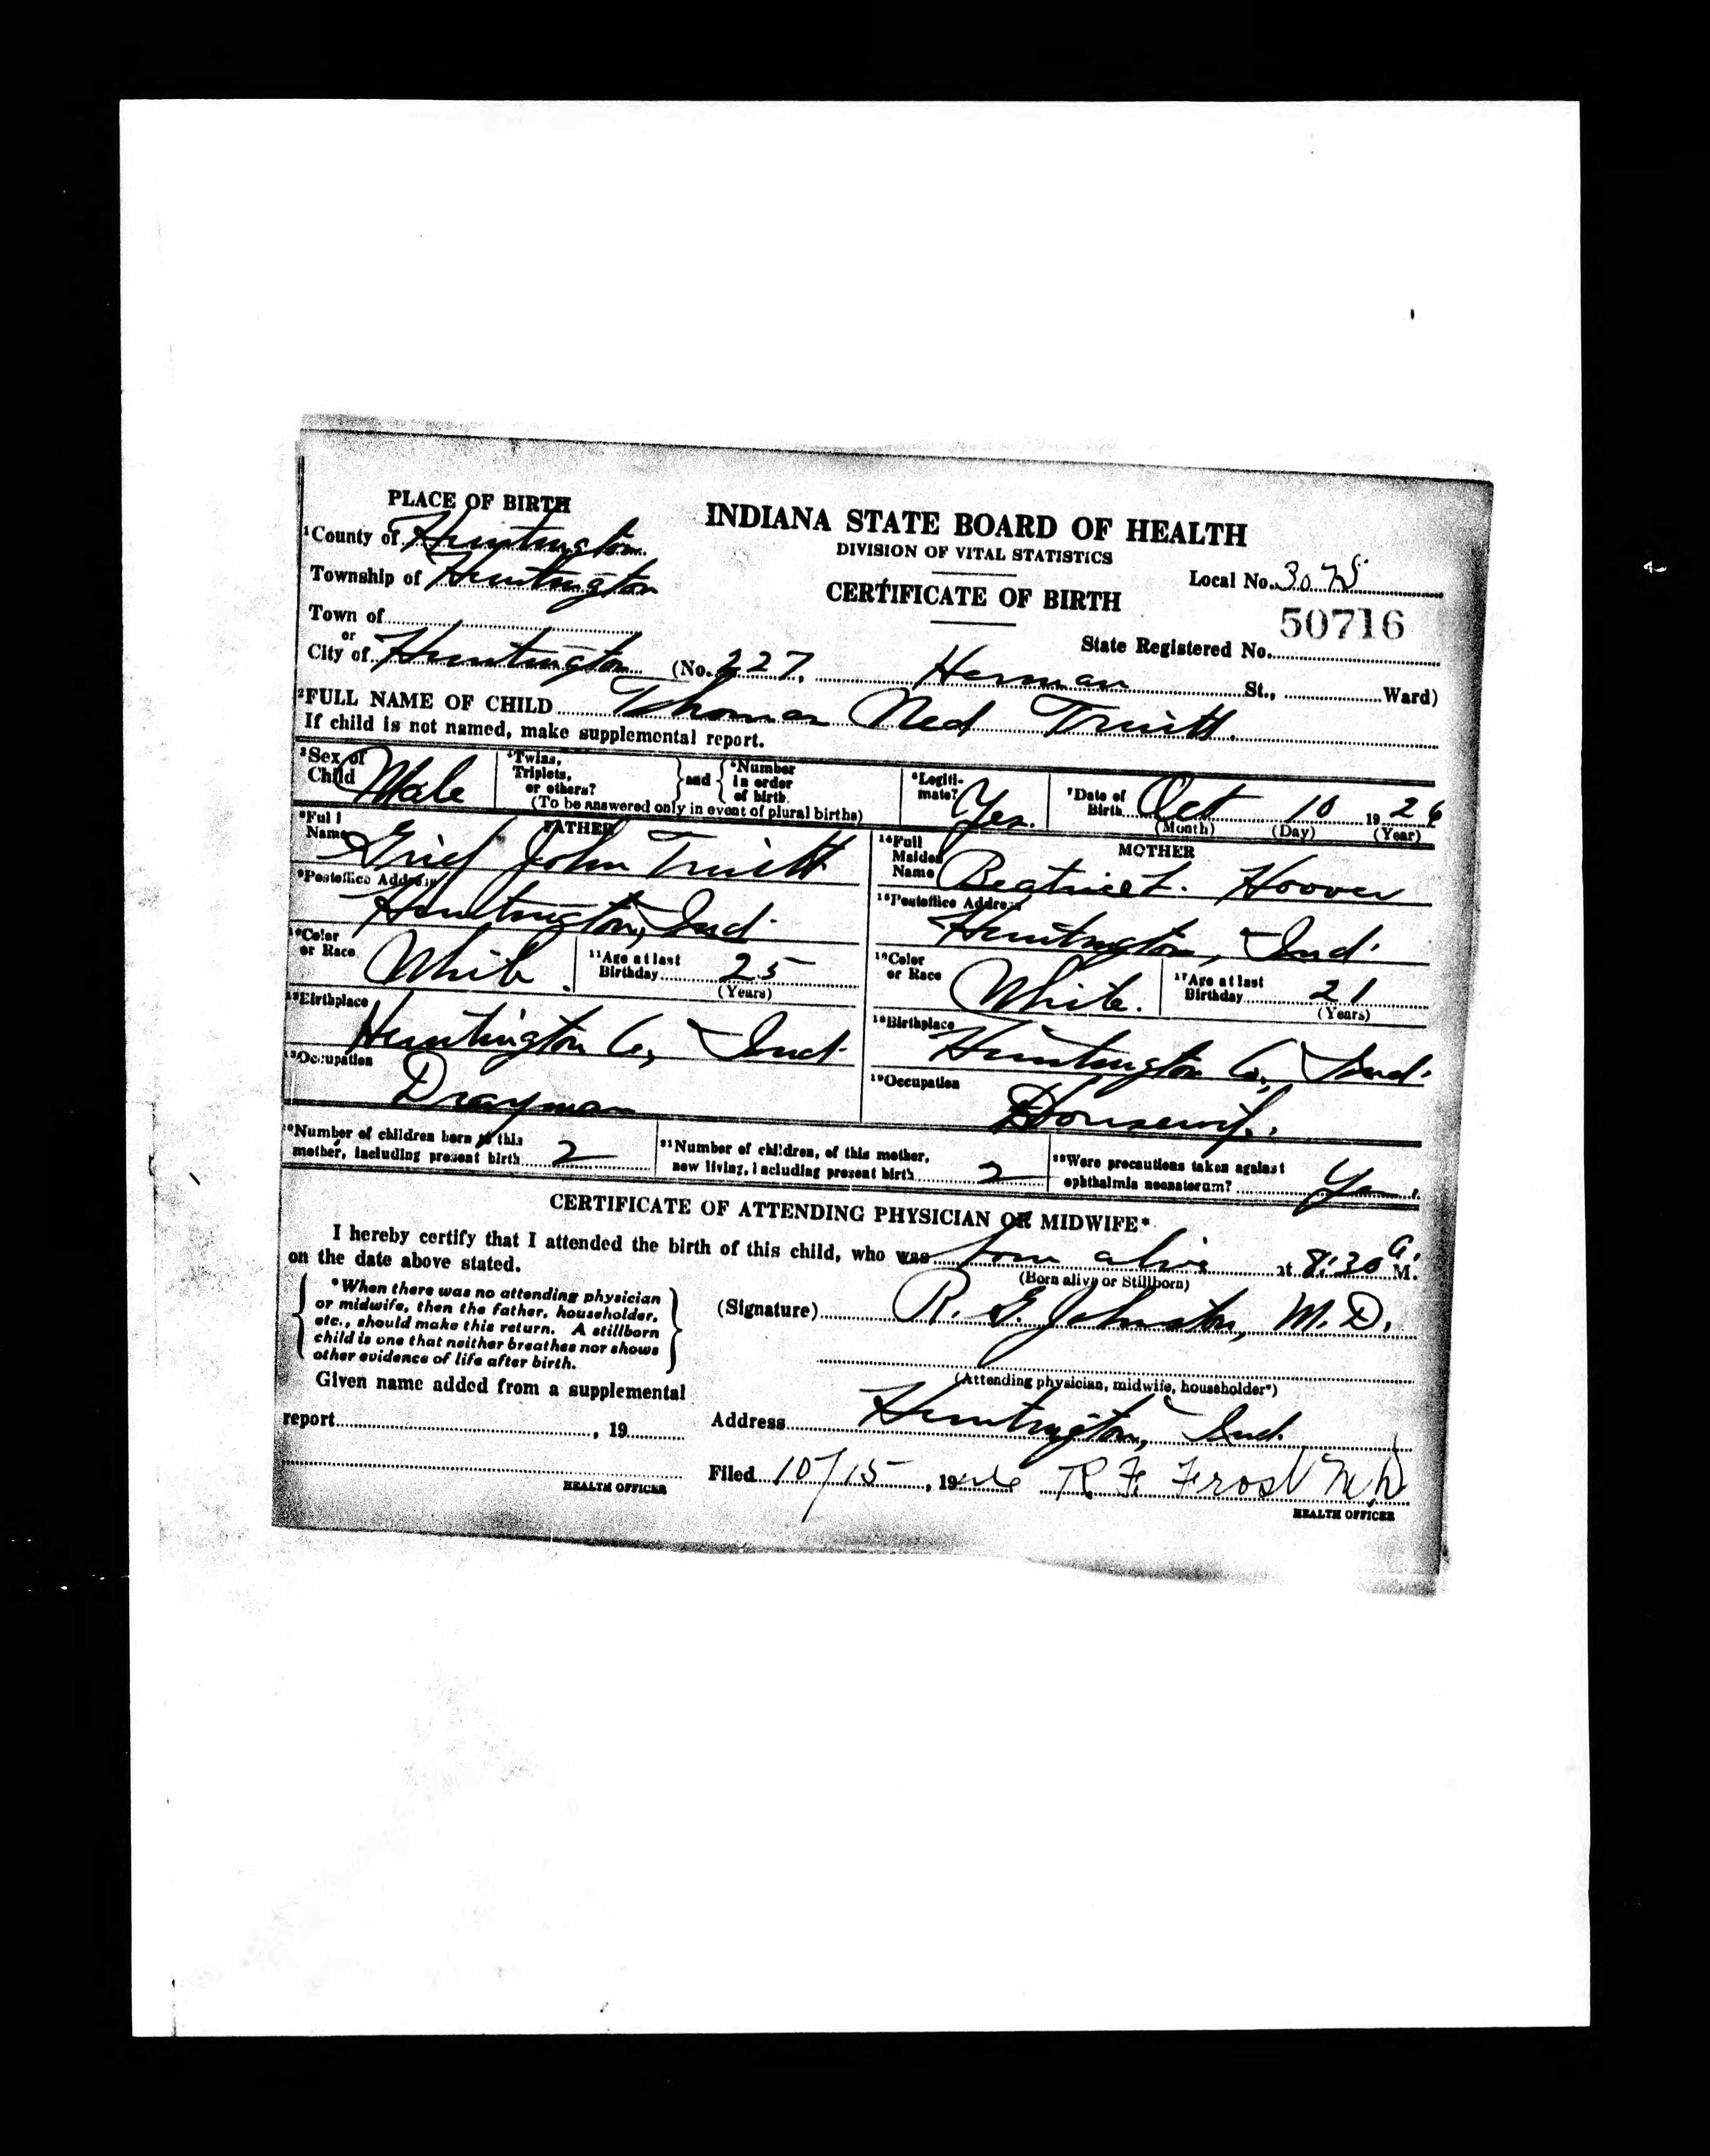 PLACE OF BIRTH
INDIANA STATE BOARD OF HEALTH
DIVISION OF VITAL STATISTICS
CERTIFICATE OF BIRTH
1 County of Huntington
Township of Huntington
Local No. 3075
Town of
or
50716
State Registered No.
City of Huntington (No. 227, Herman St., Ward)
2 FULL NAME OF CHILD Thomas Ned Truitt.
If child is not named, make supplemental report.
3 Sex of Child Male
4 Twins, Triplets, or others? and 5 Number in order of birth
(To be answered only in event of plural births)
6 Legitimate? Yes.
7 Date of Birth Oct 10 1926
(Month) (Day) (Year)
FATHER
8 Full Name Grief John Truitt
9 Postoffice Address
Huntington, Ind.
10 Color or Race White.
11 Age at last Birthday 25
(Years)
12 Birthplace
Huntington Co, Ind.
13 Occupation
Drayman
MOTHER
14 Full Maiden Name Beatrice L. Hoover
15 Postoffice Address
Huntington, Ind.
16 Color or Race White.
17 Age at last Birthday 21
(Years)
18 Birthplace
Huntington Co, Ind.
19 Occupation
Housewife.
20 Number of children born to this mother, including present birth 2
21 Number of children, of this mother, now living, including present birth 2
22 Were precautions taken against ophthalmia neonatorum? Yes.
CERTIFICATE OF ATTENDING PHYSICIAN OR MIDWIFE*
I hereby certify that I attended the birth of this child, who was born alive at 8:30 A. M.
(Born alive or Stillborn)
on the date above stated.
*When there was no attending physician
or midwife, then the father, householder,
etc., should make this return. A stillborn
child is one that neither breathes nor shows
other evidence of life after birth.
(Signature) R. G. Johnston, M.D.
(Attending physician, midwife, householder*)
Given name added from a supplemental
report , 19
HEALTH OFFICER
Address Huntington, Ind.
Filed 10/15, 1926 R. F. Frost M.D.
HEALTH OFFICER